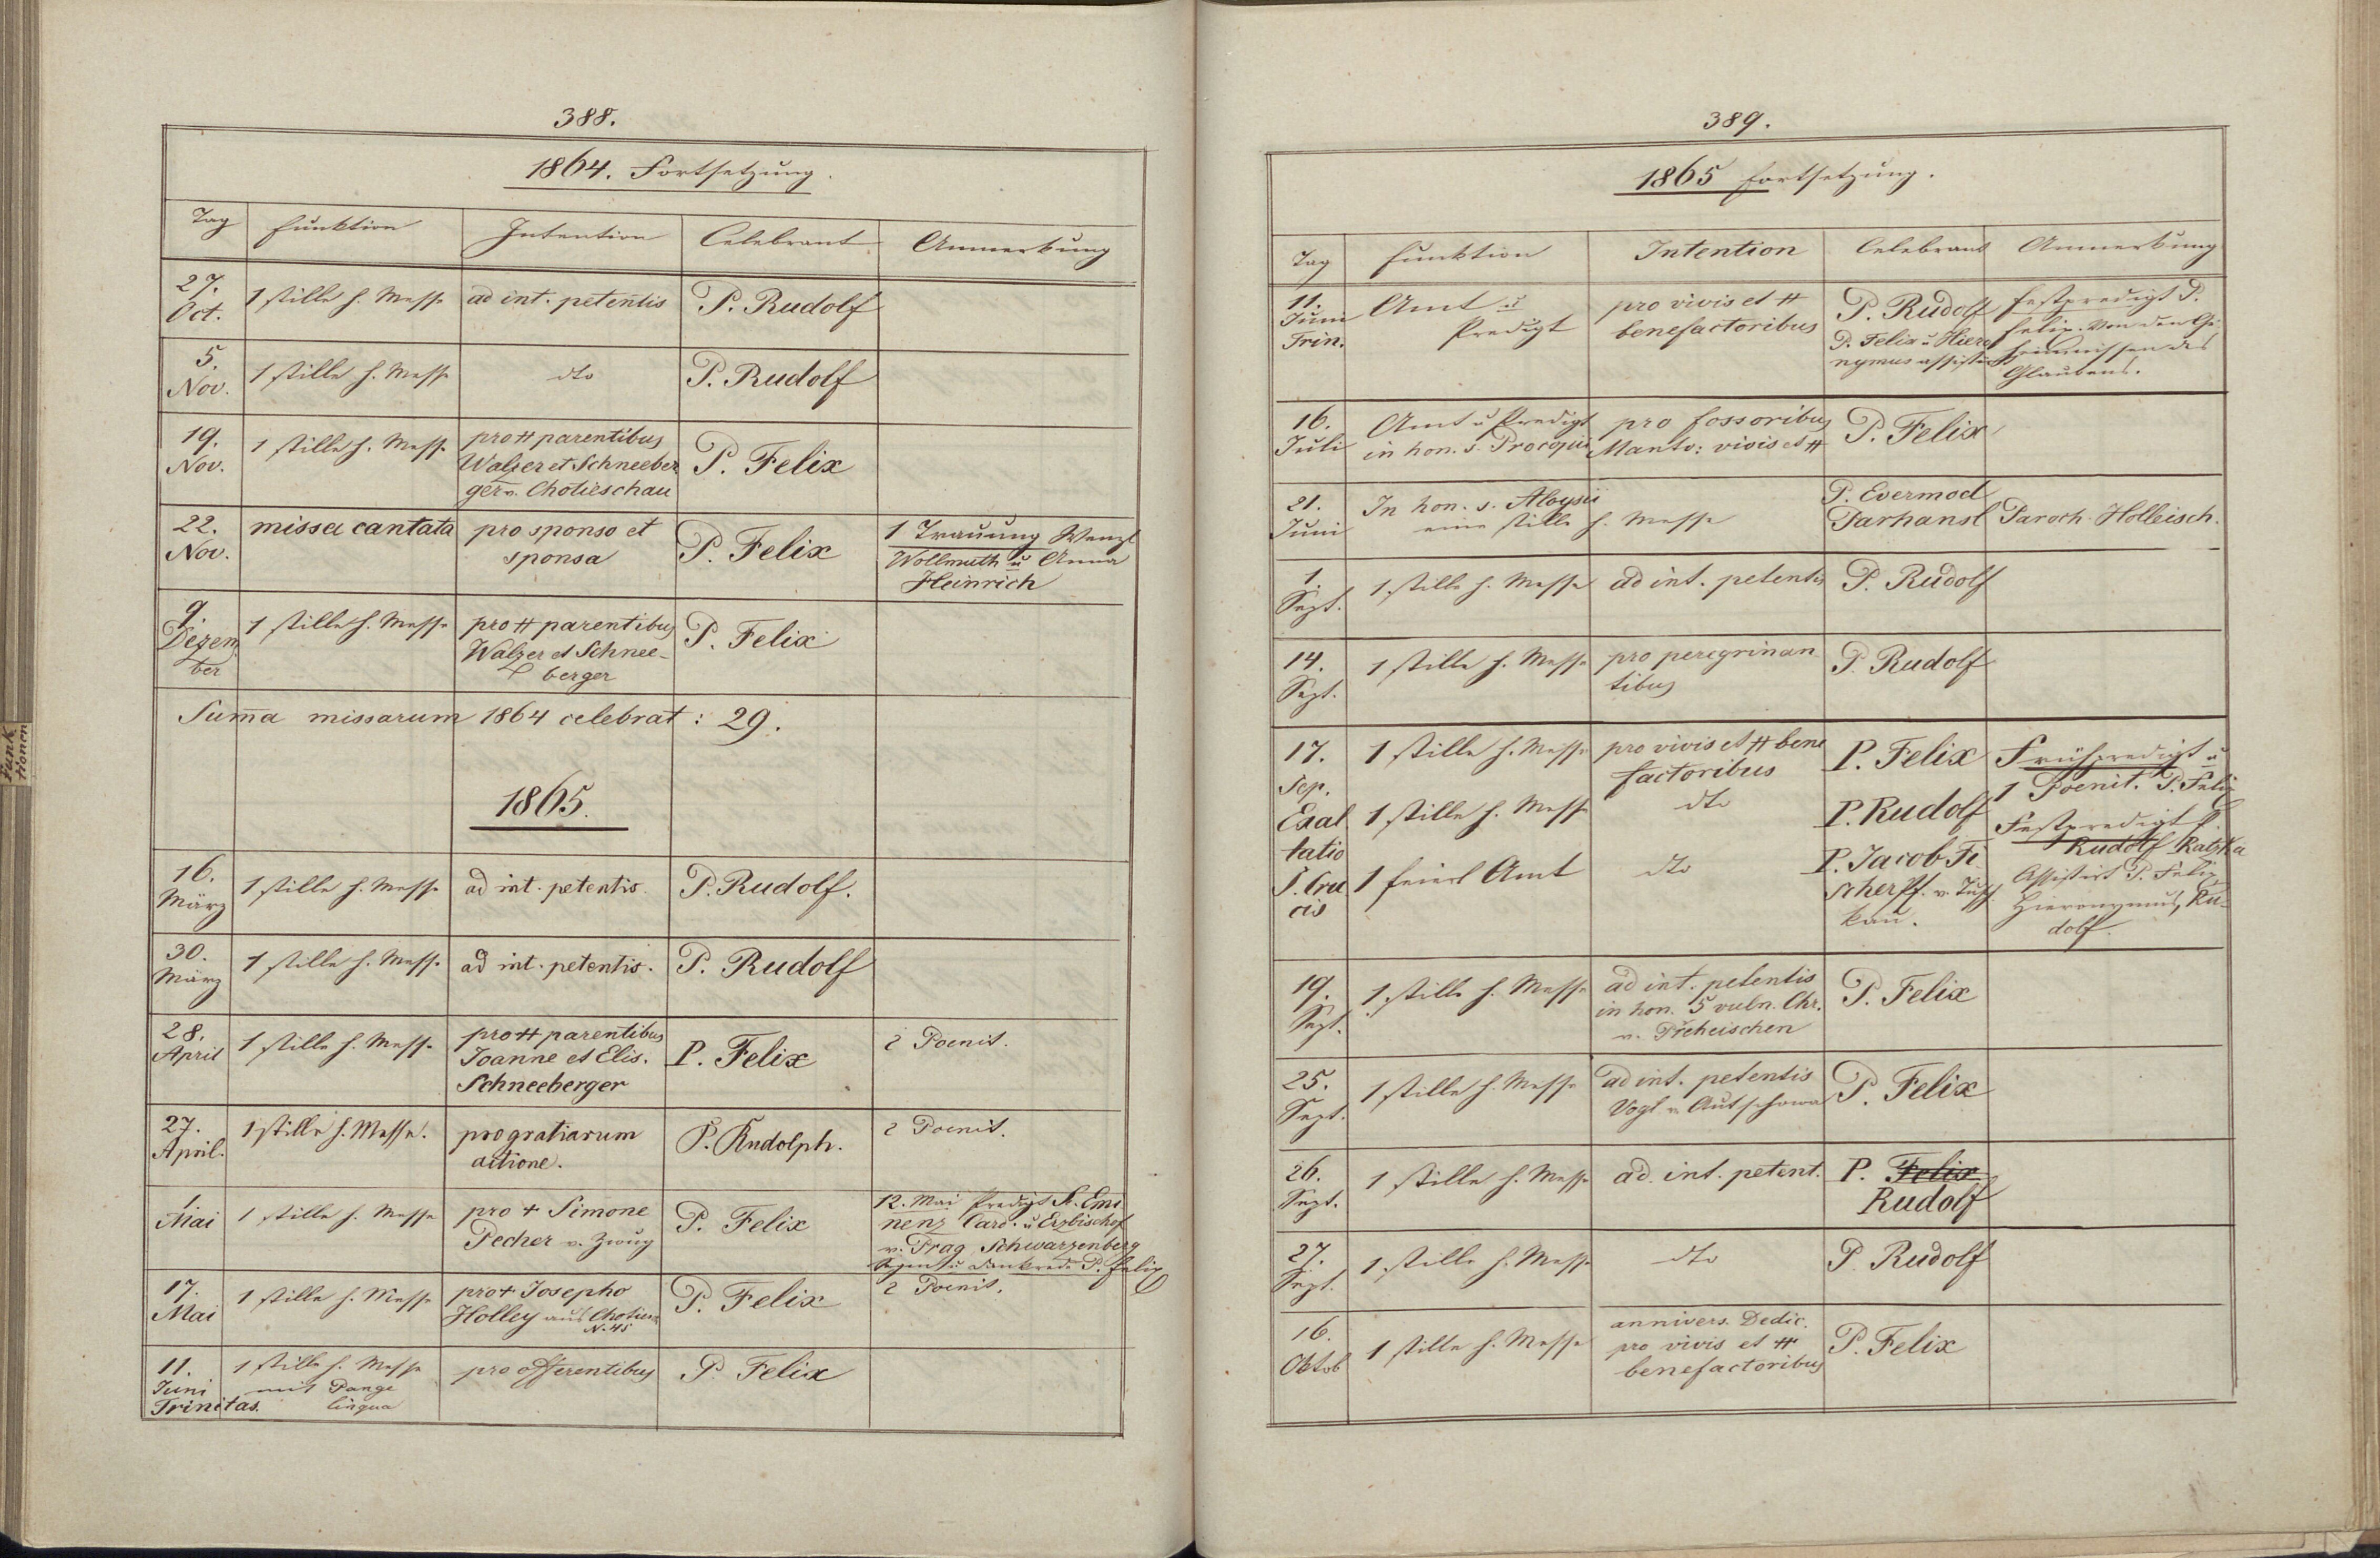 Funk
tionen
388.
1864. Fortsetzung.
Tag Funktion Intention Celebrant Anmerkung
27. Oct. 1 stille h. Messe ad int. petentis P. Rudolf
5. Nov. 1 stille h. Messe dto P. Rudolf
19. Nov. 1 stille h. Messe pro ++ parentibus P. Felix
Walzer et Schneeber
ger v. Chotieschau
22. Nov. missa cantata pro sponso et P. Felix 1 Trauung Wenzl
sponsa Wollmuth u Anna
Heinrich
9. Dezem 1 stille h. Messe pro ++ parentibus P. Felix
ber Walzer et Schnee-
berger
Sum̅a missarum 1864 celebrat: 29.
1865.
16. März 1 stille h. Messe ad int. petentis. P. Rudolf.
30. März 1 stille h. Messe ad int. petentis. P. Rudolf
28. April 1 stille h. Messe pro ++ parentibus P. Felix 2 Poenit.
Joanne et Elis.
Schneeberger
27. April. 1 stille h. Messe. pro gratiarum P. Rudolph. 2 Poenit.
actione.
1 Mai 1 stille h. Messe pro + Simone P. Felix 12. Mai Predigt Sr. Emi
Pecher v. Zwug nenz Card. u Erzbischof
v. Prag Schwarzenberg
Segen u Dankrede P. Felix
17. Mai 1 stille h. Messe pro + Josepho P. Felix 2 Poenit.
Holley aus Chotiesch
N. 45
11. Juni 1 stille h. Messe pro offerentibus P. Felix
Trinitas. mit Pange
lingua
389.
1865 Fortsetzung.
Tag Funktion Intention Celebrant Anmerkung
11. Juni Amt u pro vivis et ++ P. Rudolf Festpredigt P.
Trin. Predigt benefactoribus P. Felix u Hiero Felix. Von den Ge
nymus assistir heimnissen des
Glaubens.
16. Juli Amt u Predigt pro fossoribus P. Felix
in hon. s. Procopii Manto: vivis et ++
21. Juni In hon. s. Aloysii P. Evermod
eine stille h. Messe Parhansl Paroch. Holleisch.
1. Sept. 1 stille h. Messe ad int. petentis P. Rudolf
14. Sept. 1 stille h. Messe pro peregrinan P. Rudolf
tibus
17. Sep. 1 stille h. Messe pro vivis et ++ bene P. Felix Frühpredigt u
factoribus 1 Poenit. P. Felix
Exal 1 stille h. Messe dto P. Rudolf Festpredigt P.
tatio Rudolf Ratzka
S. Cru 1 feierl Amt dto P. Jacob Fi Assistirt P. Felix
cis scher Pf. v. Tusch Hieronymus, Ru-
kau. dolf.
19. Sept. 1 stille h. Messe ad int. petentis P. Felix
in hon. 5 vuln. Chr.
v. Přeheischen
25. Sept. 1 stille h. Messe ad int. petentis P. Felix
Vogl v. Autschowa
26. Sept. 1 stille h. Messe ad. int. petent. P. Felix
Rudolf
27. Sept. 1 stille h. Messe dto P. Rudolf
16. Oktob 1 stille h. Messe annivers. Dedic. P. Felix
pro vivis et ++
benefactoribus